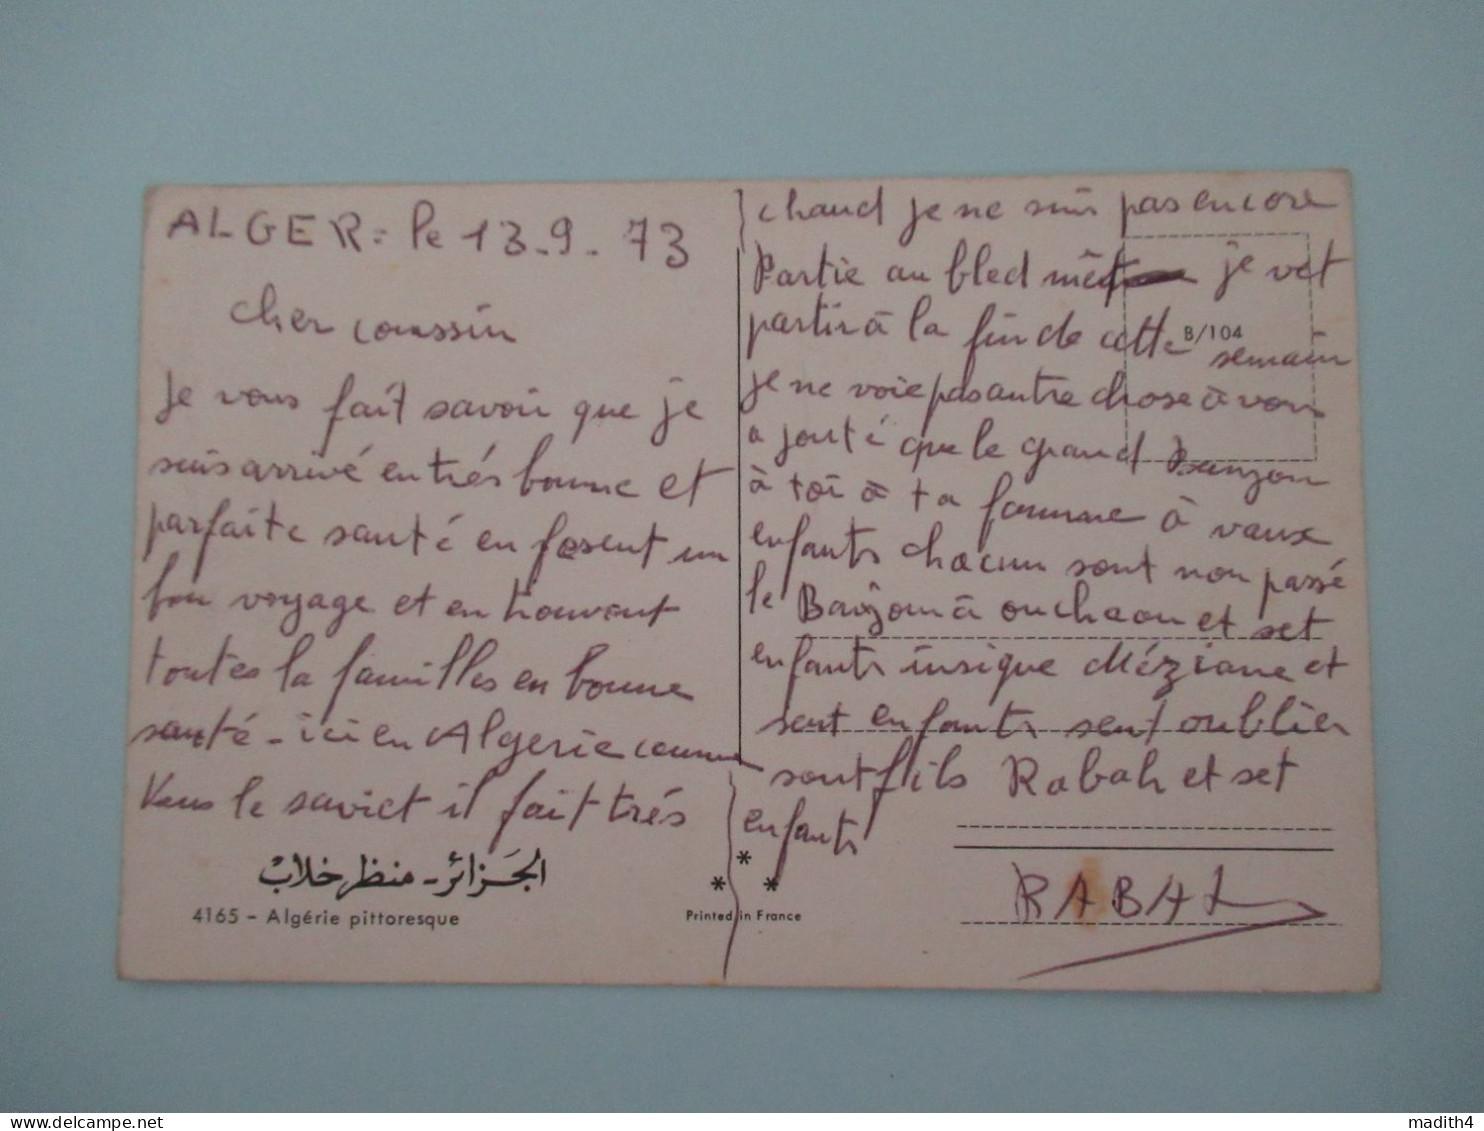 ALGER = le 13-9-73
cher coussin
je vous fait savoir que je
suis arrivé en trés bonne et
parfaite santé en fesent un
bon voyage et en trouvent
toutes la familles en bonne
santé - ici en Algerie comme
Vous le saviet il fait trés
الجزائر - منظر خلاب
4165 - Algérie pittoresque
chaud je ne suis pas encore
Partie au bled je vet
partir à la fin de cette semain
B/104
je ne voie pas autre chose à vous
a jouté que le grand Bonjon
à toi à ta famme à vaux
enfants chacun sont non passé
le Bonjour à ouchaou et set
enfants insique Méziane et
sent enfants sent oublier
sont fils Rabah et set
enfants
Printed in France
RABAH
madith4